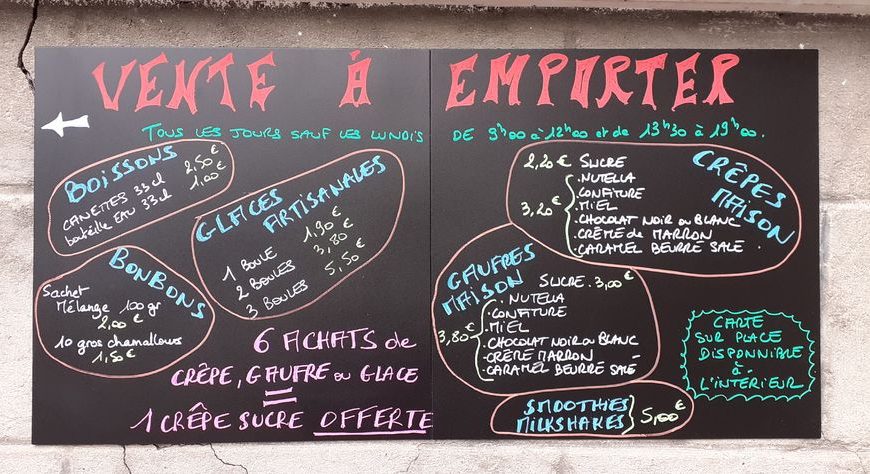 VENTE À EMPORTER
TOUS LES JOURS SAUF LES LUNDIS DE 9h00 à 12h00 et de 13h30 à 19h00.
BOISSONS
CANETTES 33cl 2,50€
bouteille EAU 33cl 1,00€
GLACES ARTISANALES
1 BOULE 1,90€
2 BOULES 3,80€
3 BOULES 5,50€
BONBONS
Sachet
Mélange 100gr
2,00€
10 gros chamallows
1,50€
6 ACHATS de
CRÊPE, GAUFRE ou GLACE
=
1 CRÊPE SUCRE OFFERTE
CRÊPES
MAISON
2,20€ SUCRE
3,20€
.NUTELLA
.CONFITURE
.MIEL
.CHOCOLAT NOIR ou BLANC
.CRÈME de MARRON
.CARAMEL BEURRE SALÉ
GAUFRES
MAISON
SUCRE. 3,00€
3,80€
.NUTELLA
.CONFITURE
.MIEL
.CHOCOLAT NOIR ou BLANC
.CRÈME MARRON
.CARAMEL BEURRE SALÉ
SMOOTHIES
MILKSHAKES 5,00€
CARTE
SUR PLACE
DISPONNIBLE
à
L'INTÉRIEUR